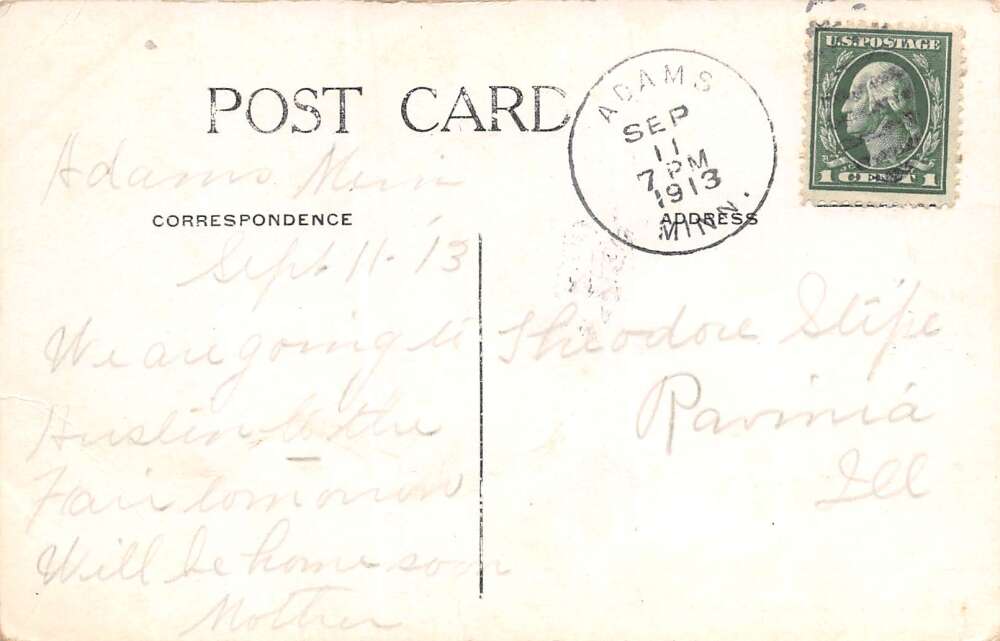 U.S. POSTAGE
1 CENT 1
ADAMS
SEP
11
7 PM
1913
MINN.
POST CARD
CORRESPONDENCE
ADDRESS
Adams Minn
Sept. 11-13
We are going to
Austin to the
Fair tomorrow
Will be home soon
Mother
Theodore Stipe
Ravinia
Ill